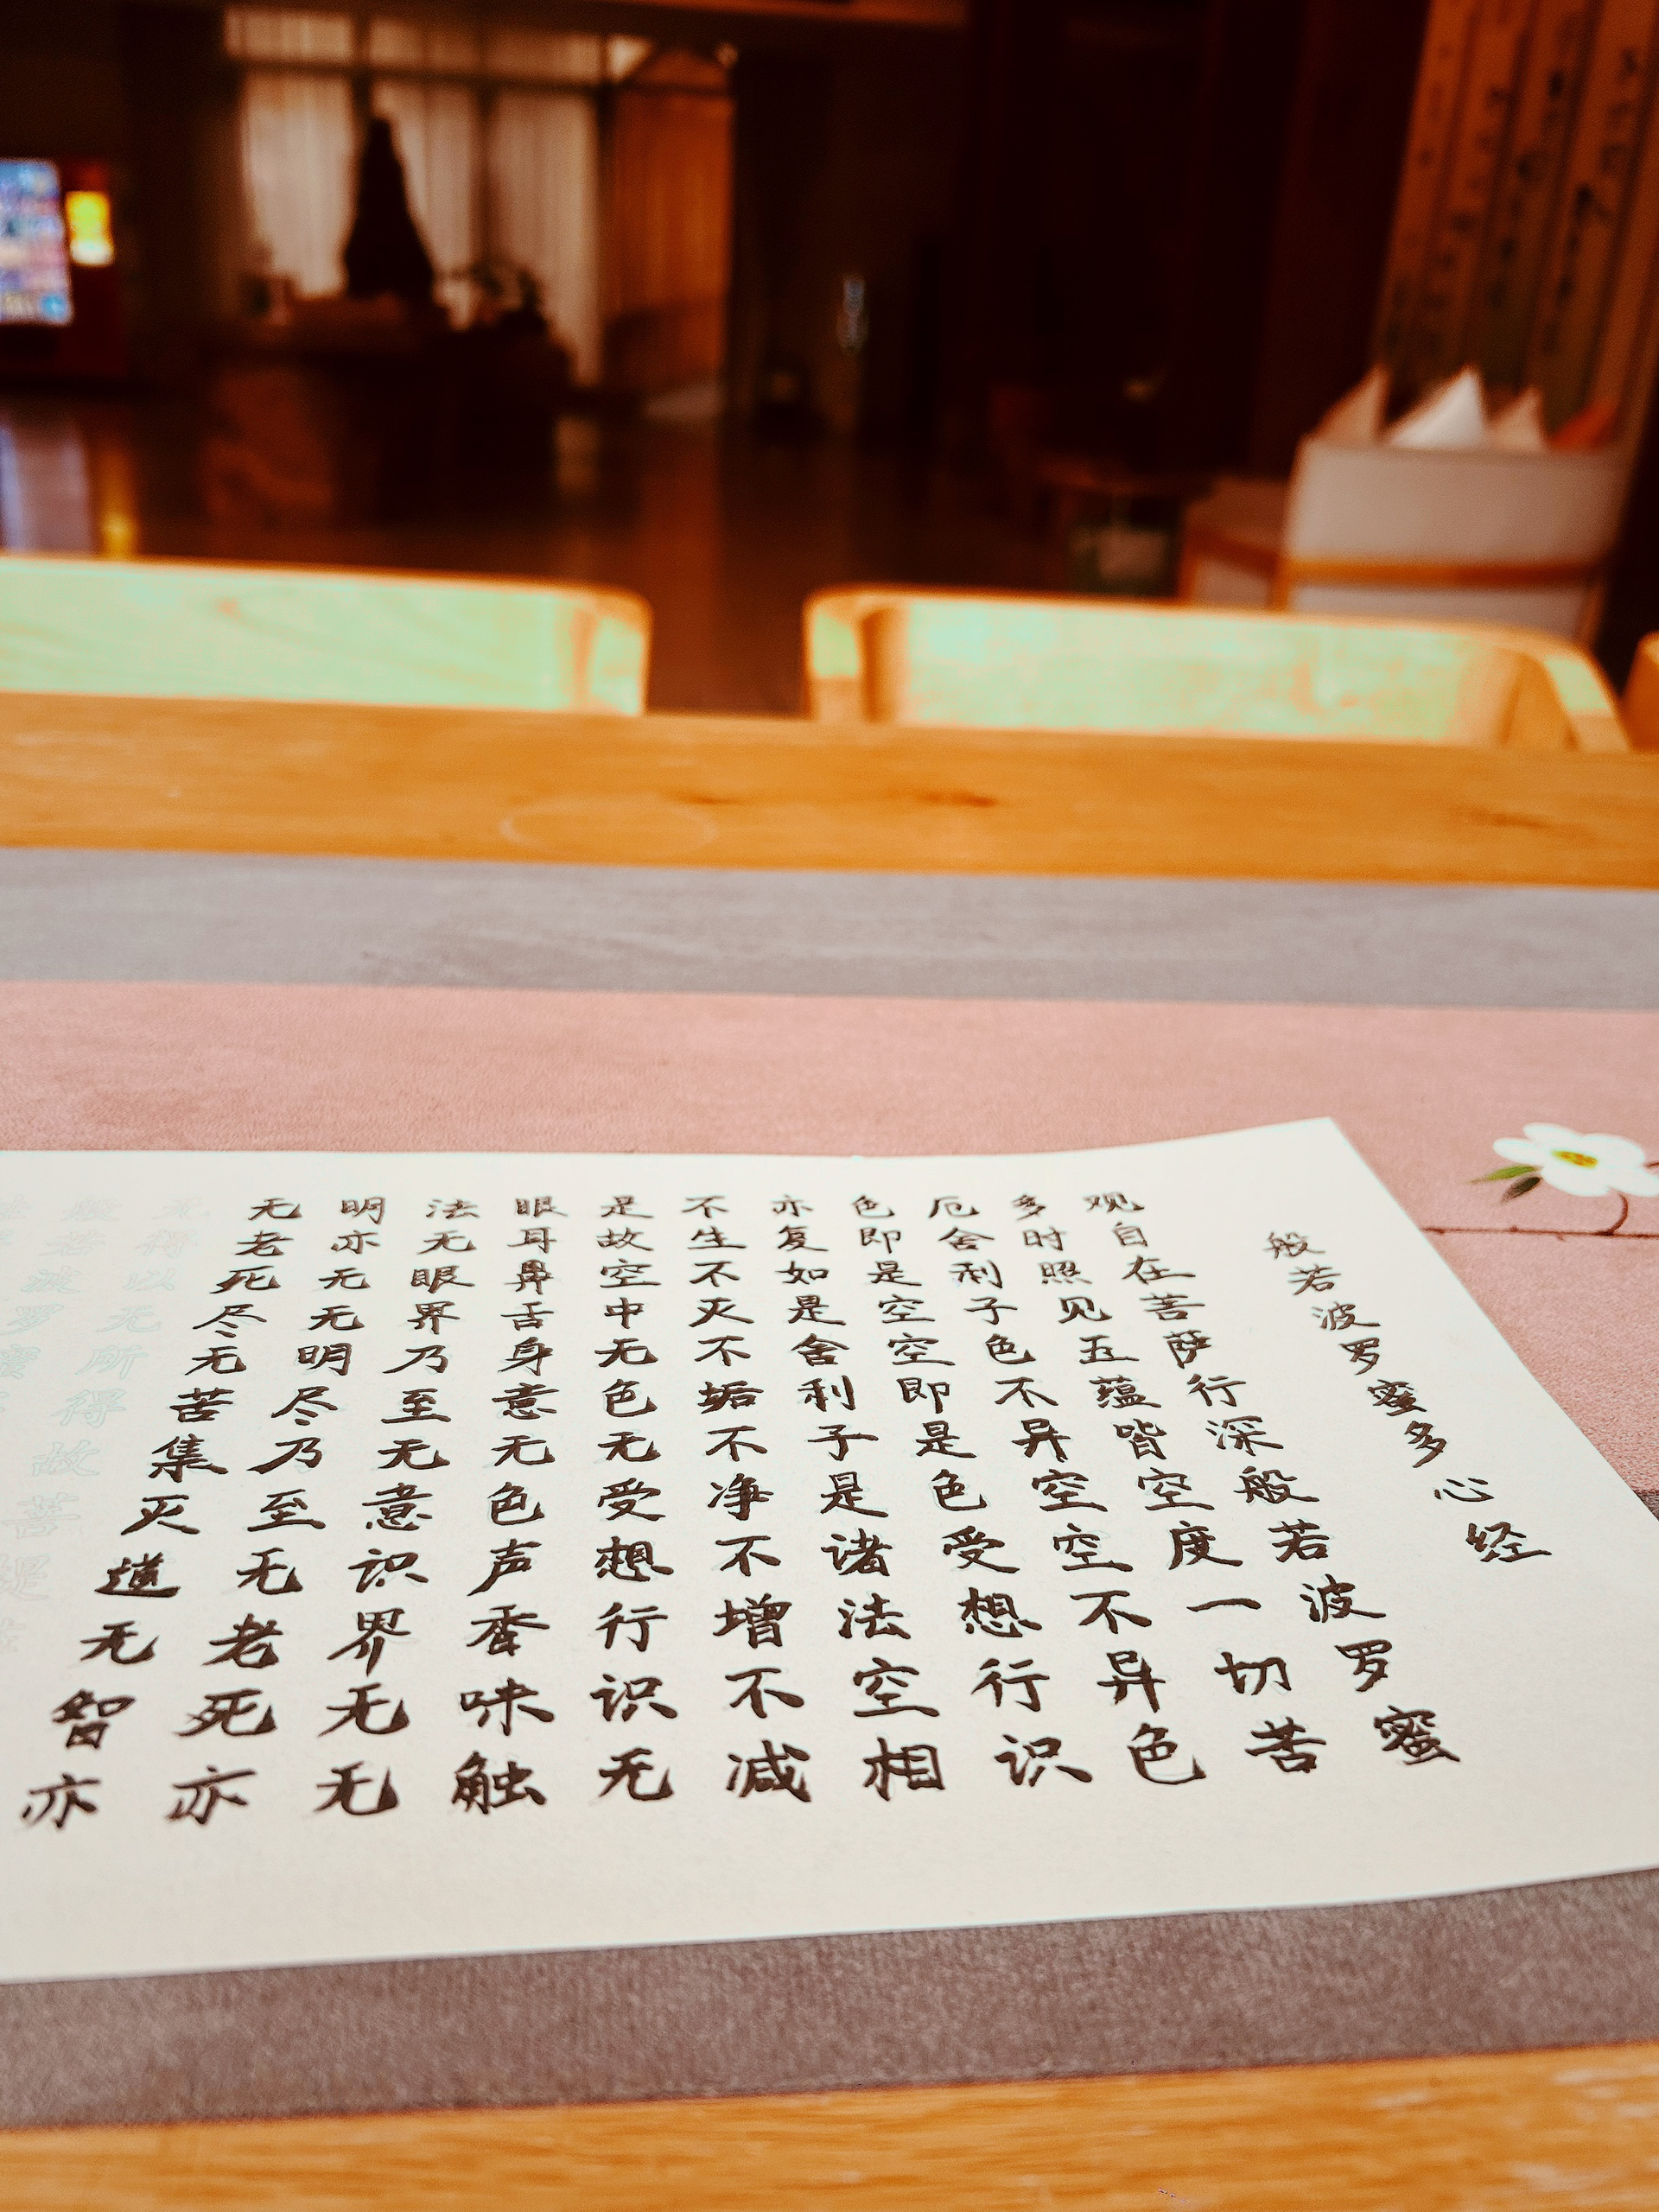 般若波罗蜜多心经
观自在菩萨行深般若波罗蜜
多时照见五蕴皆空度一切苦
厄舍利子色不异空空不异色
色即是空空即是色受想行识
亦复如是舍利子是诸法空相
不生不灭不垢不净不增不减
是故空中无色无受想行识无
眼耳鼻舌身意无色声香味触
法无眼界乃至无意识界无无
明亦无无明尽乃至无老死亦
无老死尽无苦集灭道无智亦
无得以无所得故菩提
般若波罗蜜